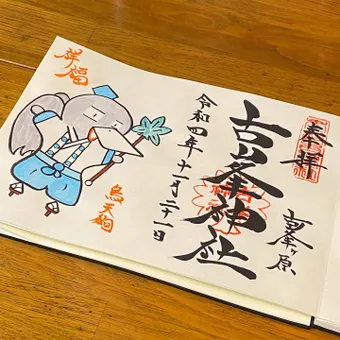 奉拝
古峯ヶ原
古峯神社
令和四年十一月二十一日
祥福
烏天狗